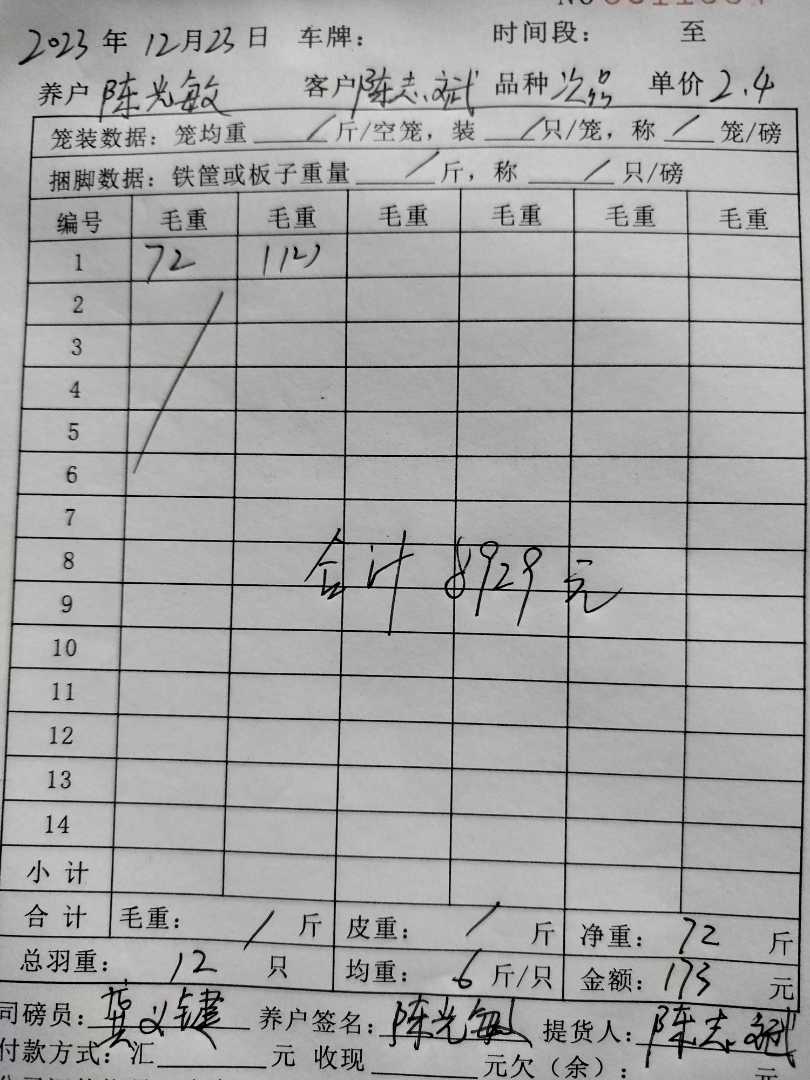 2023 年 12月23日 车牌: 时间段: 至
养户 陈光敏 客户 陈志斌 品种 次品 单价 2.4
笼装数据: 笼均重 / 斤/空笼, 装 / 只/笼, 称 / 笼/磅
捆脚数据: 铁筐或板子重量 / 斤, 称 / 只/磅
编号 毛重 毛重 毛重 毛重 毛重 毛重
1 72 (12)
2
3
4
5
6
7
8 合计 8929元
9
10
11
12
13
14
小 计
合 计 毛重: / 斤 皮重: / 斤 净重: 72 斤
总羽重: 12 只 均重: 6 斤/只 金额: 173 元
司磅员: 龚义键 养户签名: 陈光敏 提货人: 陈志斌
付款方式: 汇 元 收现 元欠(余): 元